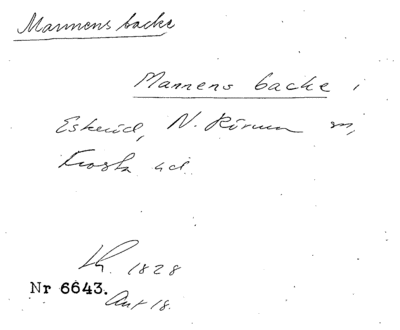 Mannens backe
Mannens backe i
Eskerid, N. Rörum sn,
Frosta hd.
Lh. 1828
Nr 6643.
Ant 18.